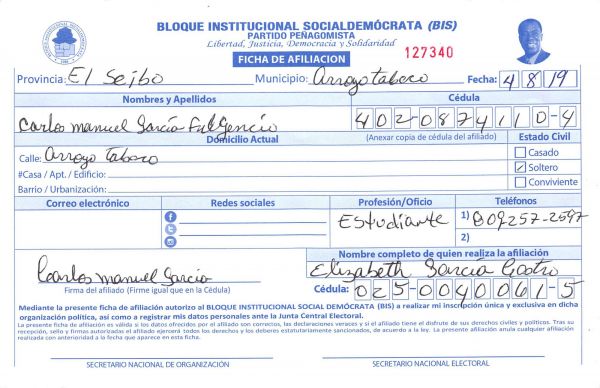 BLOQUE INSTITUCIONAL SOCIALDEMÓCRATA (BIS)
PARTIDO PEÑAGOMISTA
Libertad, Justicia, Democracia y Solidaridad
FICHA DE AFILIACION
127340
Provincia: El Seibo Municipio: Arroyo tabaco Fecha: 4 8 19
Nombres y Apellidos Cédula
Carlos manuel García FulGencio 402-0874110-4
Domicilio Actual (Anexar copia de cédula del afiliado) Estado Civil
Calle: Arroyo Tabaco Casado
#Casa / Apt. / Edificio: Soltero
Barrio / Urbanización: Conviviente
Correo electrónico Redes sociales Profesión/Oficio Teléfonos
Estudiante 1) 809257-2597
2)
Nombre completo de quien realiza la afiliación
Carlos manuel García Elizabeth García Castro
Firma del afiliado (Firme igual que en la Cédula) Cédula: 025-0040061-5
Mediante la presente ficha de afiliación autorizo al BLOQUE INSTITUCIONAL SOCIAL DEMÓCRATA (BIS) a realizar mi inscripción única y exclusiva en dicha
organización política, así como a registrar mis datos personales ante la Junta Central Electoral.
La presente ficha de afiliación es válida si los datos ofrecidos por el afiliado son correctos, las declaraciones veraces y si el afiliado tiene el disfrute de sus derechos civiles y políticos. Tras su
recepción, sello y firmas autorizadas el afiliado ejercerá todos los derechos y los deberes estatutariamente sancionados, de acuerdo a la ley. La presente afiliación anula cualquier afiliación
realizada con anterioridad a la fecha que aparece en esta ficha.
SECRETARIO NACIONAL DE ORGANIZACIÓN SECRETARIO NACIONAL ELECTORAL